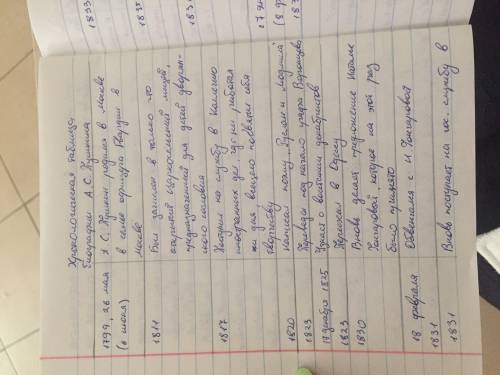 Хронологическая таблица
биографии А.С. Пушкина
1799, 26 мая А.С. Пушкин родился в Москве
(6 июня) в семье офицера Гвардии в
Москве
1811 Был записан в только что
открытый Царскосельский лицей,
предназначенный для детей дворян-
ского сословия
1817 Поступил на службу в Коллегию
иностранных дел, где ни работал
ни дня всецело посвятил себя
творчеству
1820 Написал поэму Руслан и Людмила
1823 Переведён под начало графа Воронцова
17 декабря 1825 Узнаёт о восстании декабристов
1823 Переехал в Одессу
1830 Вновь делает предложение Наталье
Гончаровой которое на этот раз
было принято
18 февраля Обвенчался с Н Гончаровой
1831
1831 Вновь поступает на гос. службу в
1833
1835
183
17 ян
(8 ф
183